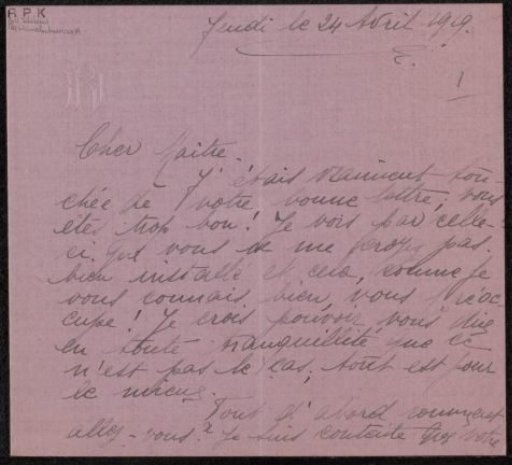 R.P.K
Jeudi le 24 Avril 1919.
1
Cher Maître.
J'étais vraiment tou-
chée de votre bonne lettre, vous
êtes trop bon! Je vois par celle-
ci que vous ne me croyez pas
bien installé et cela, comme je
vous connais bien, vous préoc-
cupe! Je crois pouvoir vous dire
en toute tranquillité que ce
n'est pas le cas, tout est pour
le mieux.
Tout d'abord comment
allez-vous? Je suis contente que votre